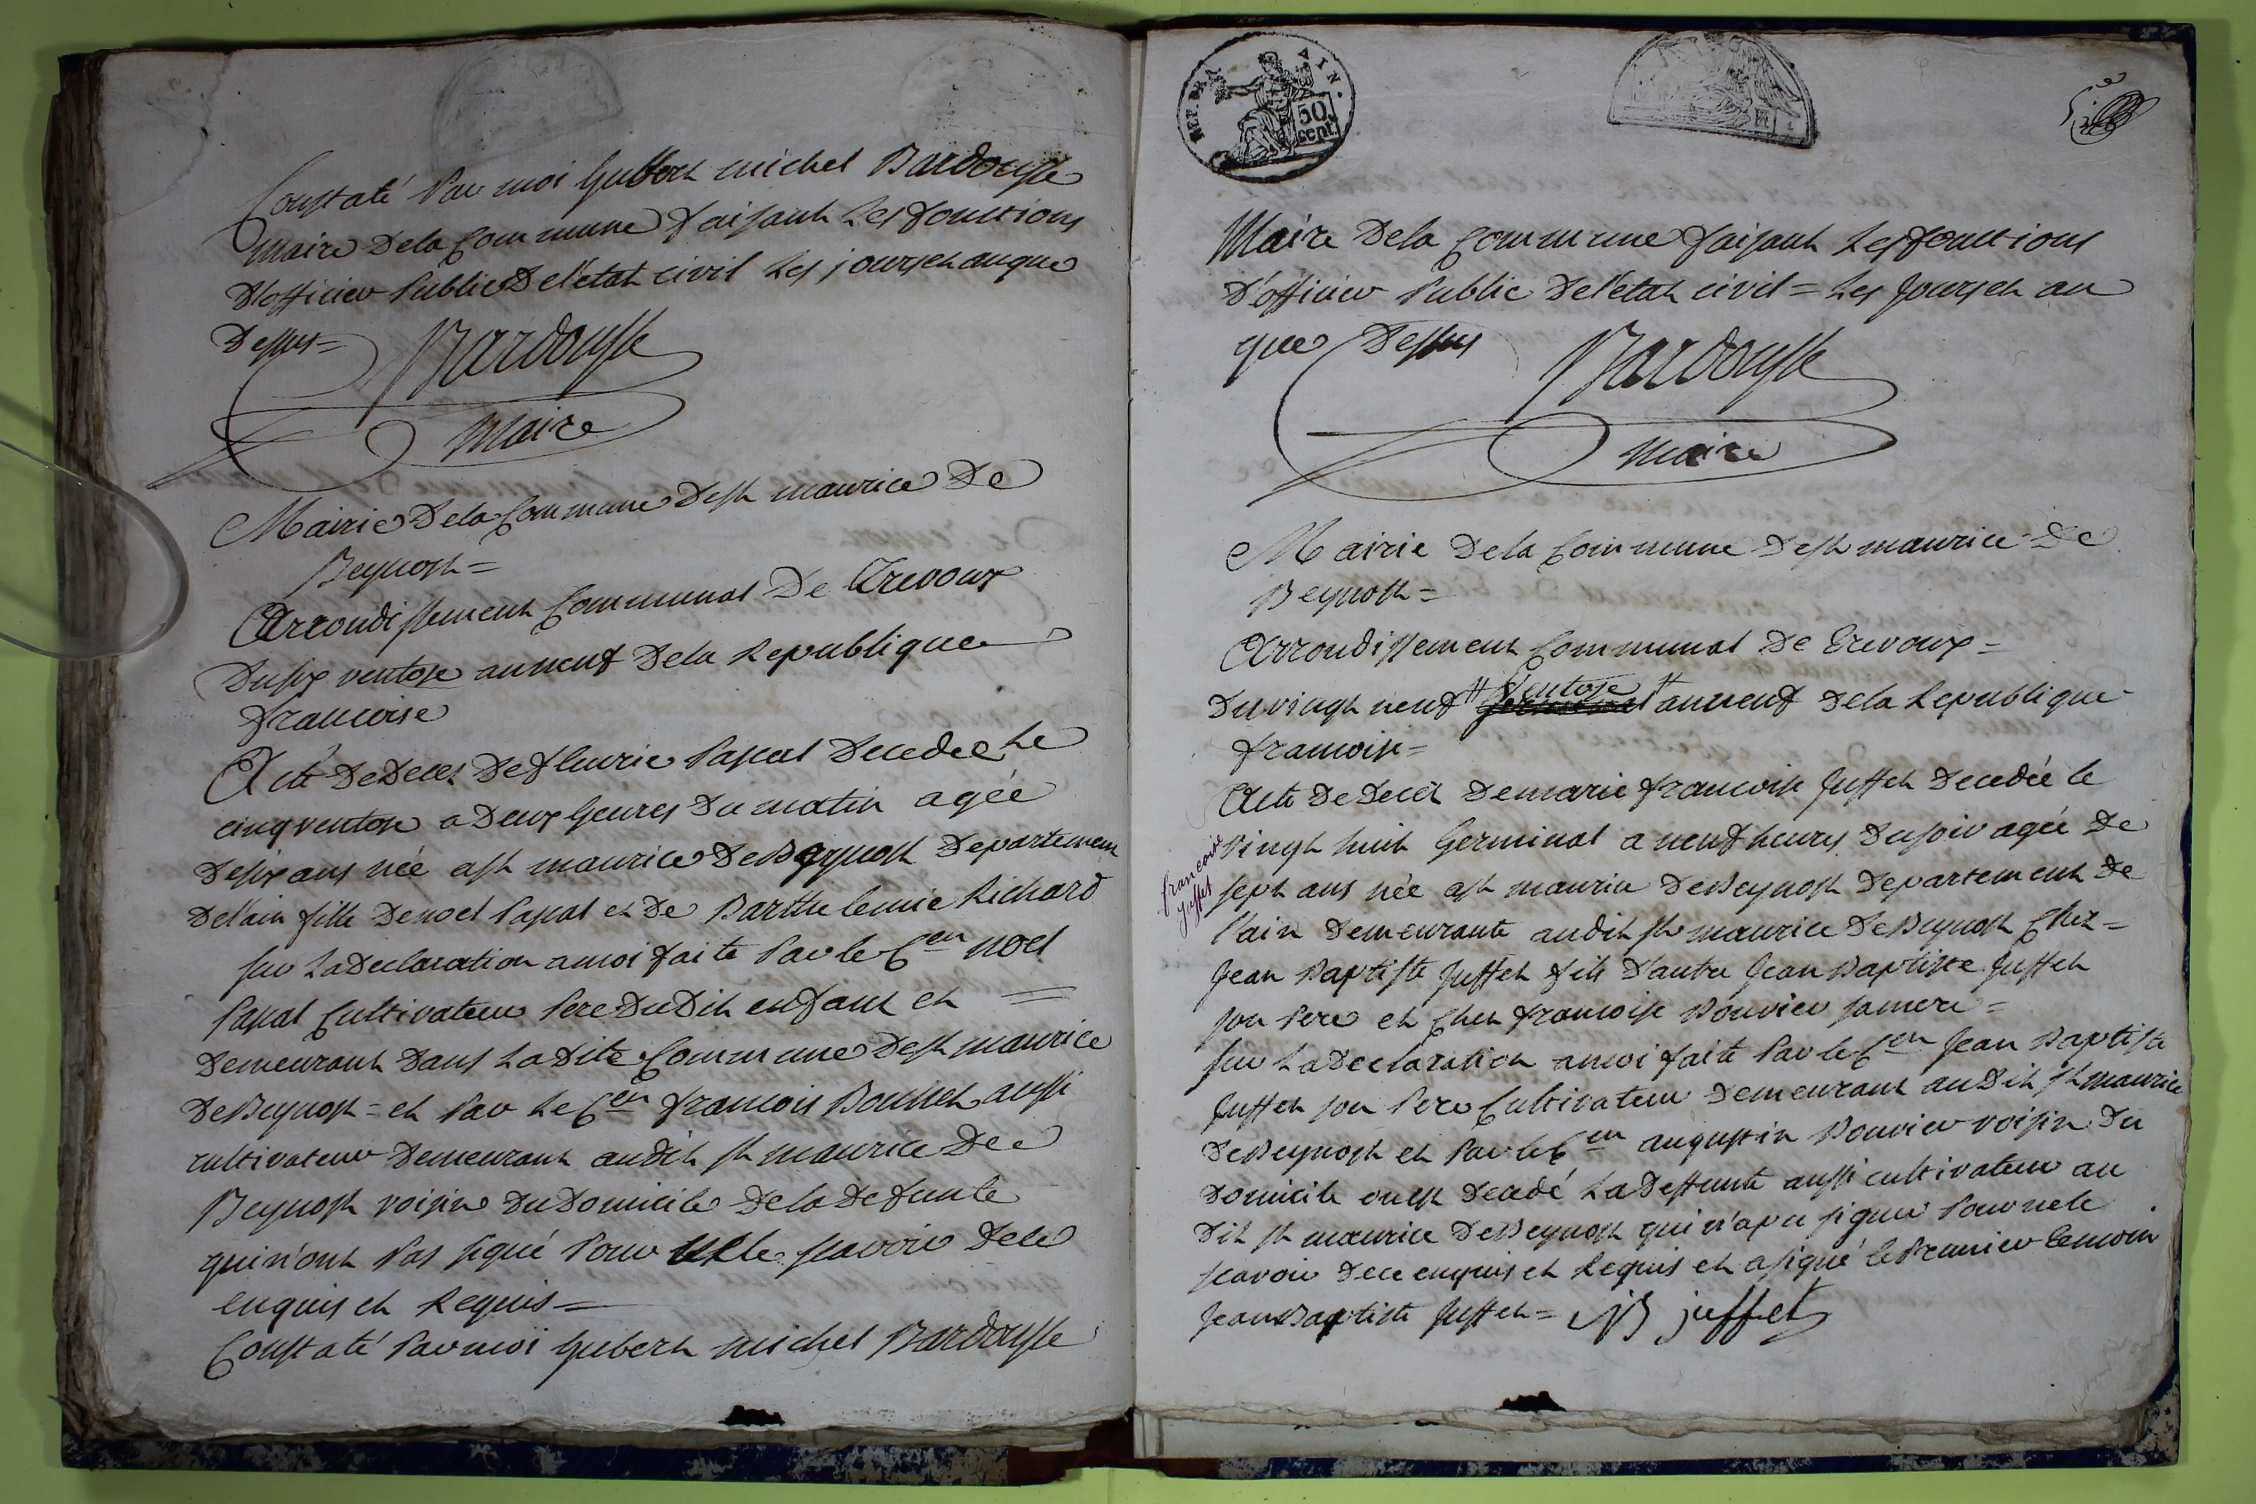 Constaté Par moi hubert michel Bardousse
maire Dela Commune faisant Les fonctions
D'officier Public De l'état civil Les jours et an que
Dessus =
Bardousse
Maire
Mairie Dela Commune De st maurice De
Beynost =
Arrondissement Communal De Trevoux
Du six ventose an neuf Dela Republique
francoise
Acte De Deces De fleurie Papat Decedee Le
cinq ventose a Deux heures Du matin agée
De six ans née a st maurice De Beynost Departement
De l'ain fille De noel Papat et De Barthelemie Richard
sur La Declaration a moi faite Par le Cen noel
Papat Cultivateur Pere Du Dit enfant et =
Demeurant Dans La Dite Commune De st maurice
De Beynost = et Par Le Cen francois aussi
cultivateur Demeurant audit st maurice De
Beynost voisin Du Domicile De la Defunte
qui n'ont Pas signé Pour scavoir De ce
enquis et Requis =
Constaté Par moi hubert michel Bardousse
REP. FRA. 50 cent.
Maire Dela Commune faisant Les fonctions
D'officier Public De l'état civil = Les jours et an
que Dessus
Bardousse
Maire
Mairie Dela Commune De st maurice De
Beynost =
Arrondissement Communal De Trevoux =
Ventose
Du vingt neuf germinal an neuf Dela Republique
francoise =
Acte De Decès De marie francoise Juffet Decedée le
vingt huit Germinal a neuf heures Du soir agée De
francoise
juffet
sept ans née a st maurice De Beynost Departement De
l'ain Demeurante audit st maurice De Beynost Chez =
Jean Baptiste Juffet fils D'autre Jean Baptiste Juffet
son Pere et Chez francoise Bouvier sa mere =
sur La Declaration a moi faite Par le Cen Jean Baptiste
Juffet son Pere Cultivateur Demeurant audit st maurice
De Beynost et Par le Cen augustin Bouvier voisin Du
Domicile ou est Decedé La Deffunte aussi cultivateur au
Dit st maurice De Beynost qui n'a pu signer Pour ne le
scavoir De ce enquis et Requis et a signé le Premier temoin
Jean Baptiste Juffet = JB juffet